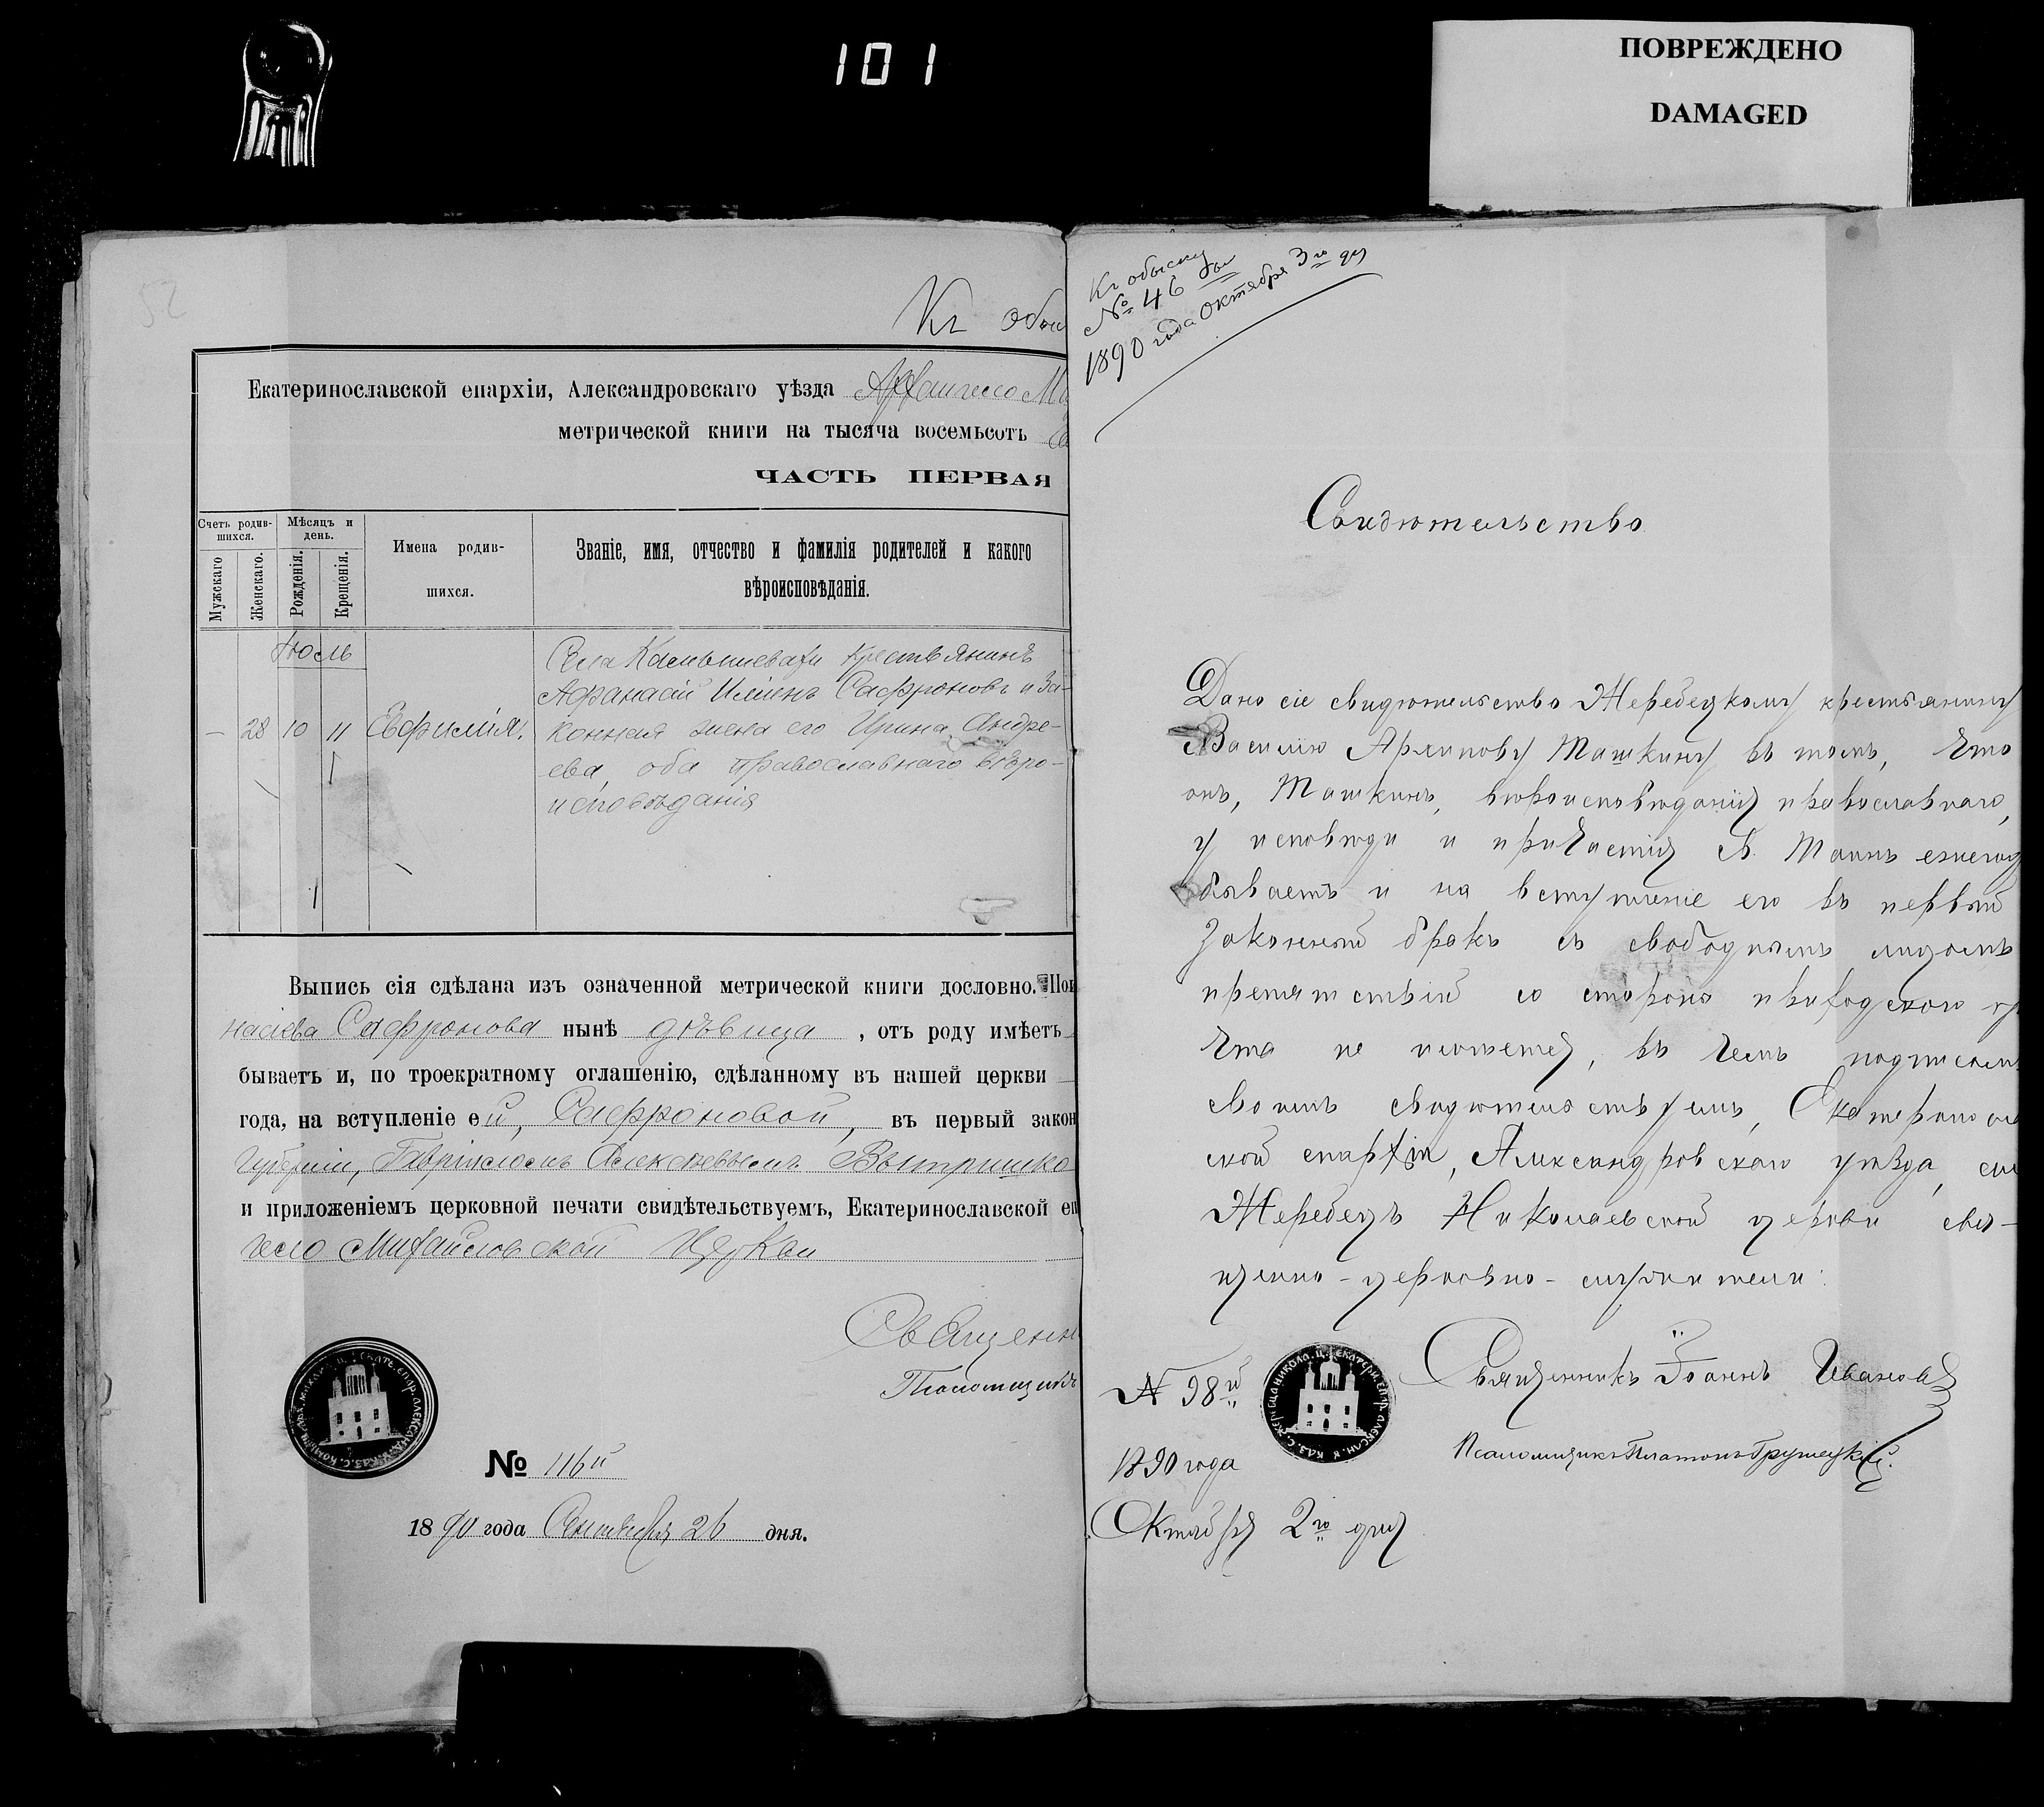 101
ПОВРЕЖДЕНО
DAMAGED
52
Къ обы
Екатеринославской епархіи, Александровскаго уѣзда Архангело Ми
метрической книги на тысяча восемьсотъ
ЧАСТЬ ПЕРВАЯ
Счетъ родив-
шихся.
Мѣсяцъ и
день.
Мужскаго
Женскаго.
Рожденія.
Крещенія.
Имена родив-
шихся.
Званіе, имя, отчество и фамилія родителей и какого
вѣроисповѣданія.
Іюль
— 28 10 11 Евфимія.
Села Камышевахи крестьянинъ
Афанасій Илiинъ Сафроновъ и за-
конная жена его Ирина Андре-
ева, оба православнаго вѣро-
исповѣданія
Выпись сія сдѣлана изъ означенной метрической книги дословно. Пои
насіева Сафронова нынѣ дѣвица, отъ роду имѣетъ
бываетъ и, по троекратному оглашенію, сдѣланному въ нашей церкви
года, на вступленіе ей, Сафроновой, въ первый закон
Губерніи, Гавріиломъ Алексѣевымъ
и приложеніемъ церковной печати свидѣтельствуемъ, Екатеринославской еп
гело Михайловской Церкви
Священн
Псаломщикъ
№ 116й
1890 года Сентября 26 дня.
Къ обыску
№ 46 му
1890 года Октября 3го дня
Свидѣтельство
Дано сіе свидѣтельство Жеребецкому крестьянину
Василію Архипову Ташкину въ томъ, что
онъ, Ташкинъ, вѣроисповѣданія православнаго,
у исповѣди и причастія Св. Таинъ ежегод
бываетъ и на вступленіе его въ первый
законный бракъ съ свободнымъ лицомъ
препятствій со стороны приходскаго пр
чта не имѣется, въ чемъ подписом
своимъ свидѣтельствуемъ, Екатеринослав
ской епархіи, Александровскаго уѣзда, се
Жеребецъ Николаевской церкви свя-
щенно-церковно-служители:
Священникъ Іоаннъ Ивановъ
Псаломщикъ Платонъ Грушецкій.
№ 98й
1890 года
Октября 2го дня